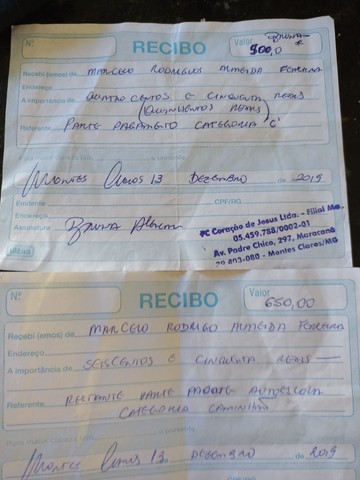 Nº RECIBO Valor
500,0
Recebi (emos) de MARCELO RODRIGUES ALMEIDA FERREIRA
Endereço
A importância de QUATROCENTOS E CINQUENTA REAIS
(QUINHENTOS REAIS)
Referente PARTE PAGAMENTO CATEGORIA "C"
MONTES CLAROS 13 DEZEMBRO de 2019
Emitente CPF/RG
Endereço
Assinatura Bruna
FC Coração de Jesus Ltda. - Filial
05.459.788/0002-01
Av. Padre Chico, 297, Maracanã
39.403-080 - Montes Claros/MG
Nº RECIBO Valor
650,00
Recebi (emos) de MARCELO RODRIGO ALMEIDA FERREIRA
Endereço
A importância de SEISCENTOS E CINQUENTA REAIS
Referente RESTANTE PARTE AUTOESCOLA
CATEGORIA CAMINHÃO
MONTES CLAROS 13 DEZEMBRO de 2019